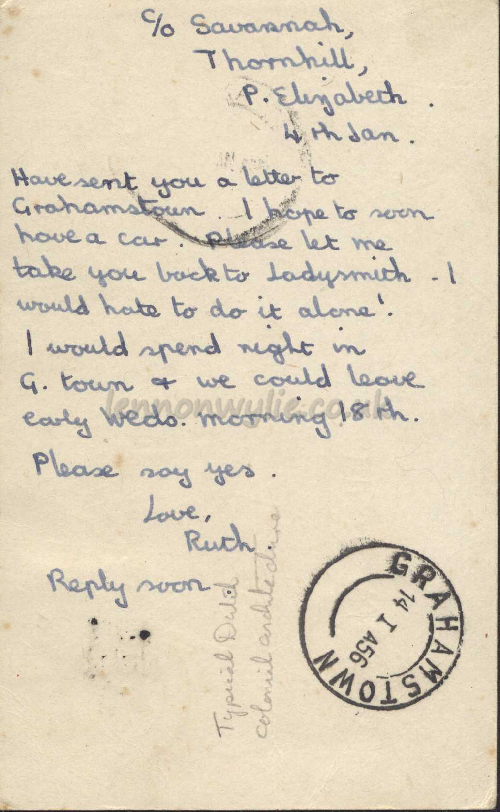 C/o Savannah,
Thornhill,
P. Elizabeth.
4th Jan.
Have sent you a letter to
Grahamstown. I hope to soon
have a car. Please let me
take you back to Ladysmith - I
would hate to do it alone!
I would spend night in
G. town & we could leave
early Weds. morning 18th.
Please say yes.
Love,
Ruth.
Reply soon.
lennonwylie.co.uk
Typical
colonial
GRAHAMSTOWN
14 I 56